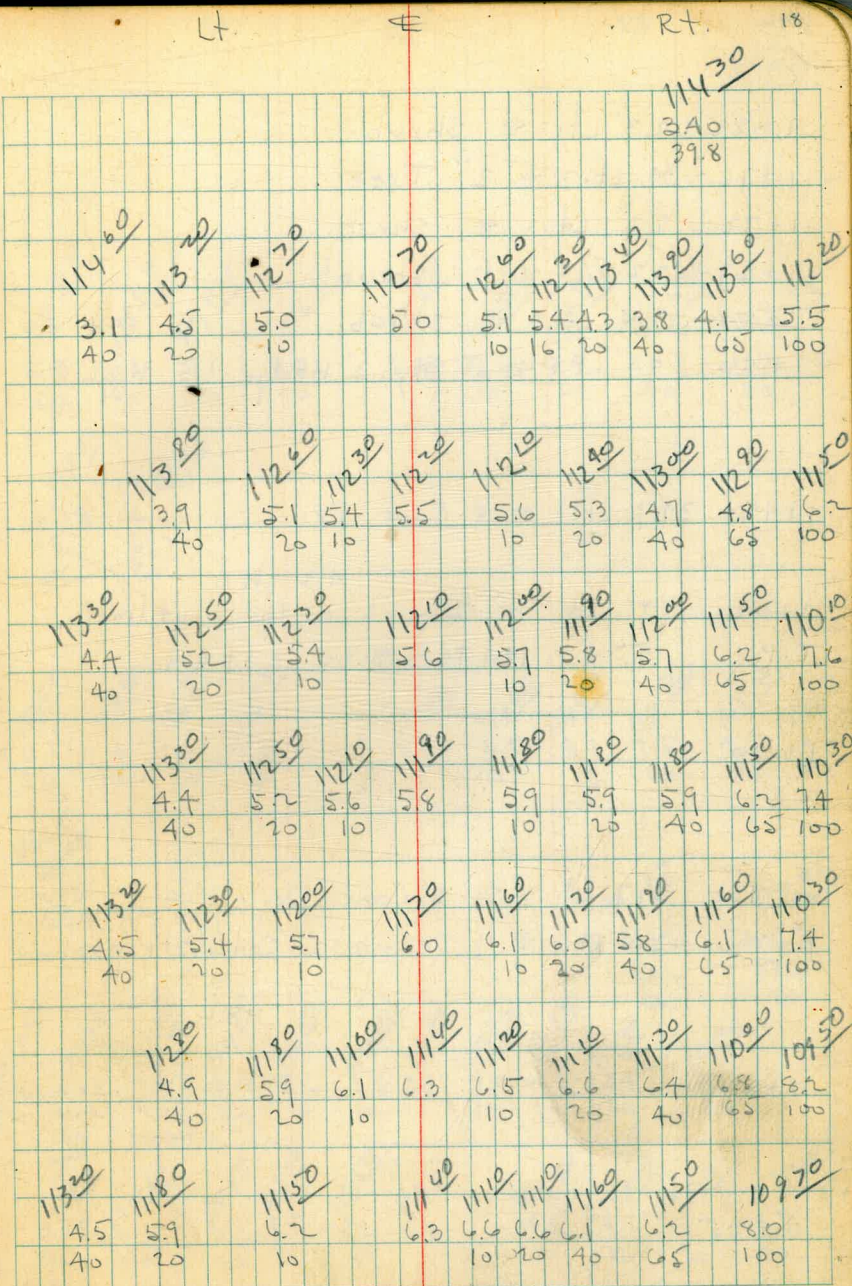 Lt. ℄ Rt. 18
114 30
3.40
39.8
114 60 113 20 112 70 112 70 112 60 112 30 113 40 113 90 113 60 112 20
3.1 4.5 5.0 5.0 5.1 5.4 4.3 3.8 4.1 5.5
40 20 10 10 16 20 40 65 100
113 80 112 60 112 30 112 20 112 10 112 40 113 00 112 90 111 50
3.9 5.1 5.4 5.5 5.6 5.3 4.7 4.8 6.2
40 20 10 10 20 40 65 100
113 30 112 50 112 30 112 10 112 00 111 90 112 00 111 50 110 10
4.4 5.2 5.4 5.6 5.7 5.8 5.7 6.2 7.6
40 20 10 10 20 40 65 100
113 30 112 50 112 10 111 90 111 80 111 80 111 80 111 50 110 30
4.4 5.2 5.6 5.8 5.9 5.9 5.9 6.2 7.4
40 20 10 10 20 40 65 100
113 20 112 30 112 00 111 70 111 60 111 70 111 90 111 60 110 30
4.5 5.4 5.7 6.0 6.1 6.0 5.8 6.1 7.4
40 20 10 10 20 40 65 100
112 80 111 80 111 60 111 40 111 20 111 10 111 30 110 00 109 50
4.9 5.9 6.1 6.3 6.5 6.6 6.4 6.8 8.2
40 20 10 10 20 40 65 100
113 20 111 80 111 50 111 40 111 10 111 10 111 60 111 50 109 70
4.5 5.9 6.2 6.3 6.6 6.6 6.1 6.2 8.0
40 20 10 10 20 40 65 100